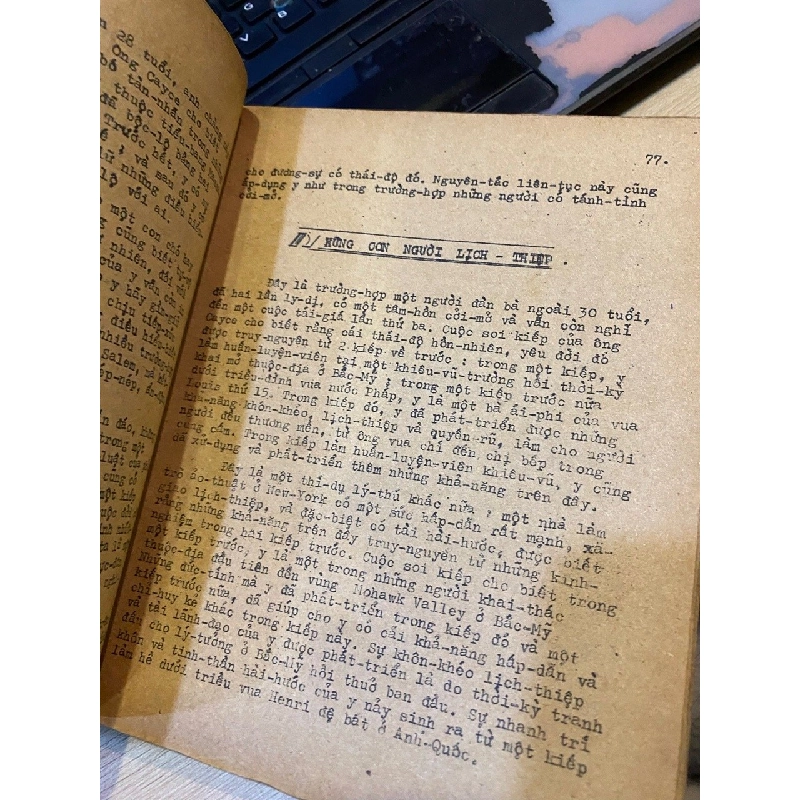 28 tuổi, anh chồng
Ông Cayce cho biết
bố tàn-nhẫn trong
thuộc tiểu-bang
đã bộc-lộ bằng hai
Trước hết, y có
; và sau đó
những điều
lộ với ai.
một con chó hay
cũng biết
nhiên, đối với
của y vẫn còn
y hãy gìn-giữ
chịu tiếp
điều hiểu
nhiều trường
Salem, xá
nếp,
77.
cho đương-sự có thái-độ đó. Nguyên-tắc liên-tục này cũng
áp-dụng y như trong trường-hợp những người có tánh-tình
cởi-mở.
HỮNG CON NGƯỜI LỊCH - THIỆP.
Đây là trường-hợp một người đàn bà ngoài 30 tuổi,
đã hai lần ly-dị, có một tâm-hồn cởi-mở và vẫn còn nghĩ
đến một cuộc tái-giá lần thứ ba. Cuộc soi kiếp của ông
Cayce cho biết rằng cái thái-độ hồn-nhiên, yêu đời đó
được truy-nguyên từ 2 kiếp về trước ; trong một kiếp, y
làm huấn-luyện-viên tại một khiêu-vũ-trường hồi thời-kỳ
khai mở thuộc-địa ở Bắc-Mỹ ; trong một kiếp trước nữa
dưới triều-đình vua nước Pháp, y là một bà ái-phi của vua
Louis thứ 15. Trong kiếp đó, y đã phát-triển được những
khả-năng khôn-khéo, lịch-thiệp và quyến-rũ, làm cho người
người đều thương mến, từ ông vua chí đến chị bếp trong
cung cấm. Trong kiếp làm huấn-luyện-viên khiêu-vũ, y cũng
đã xử-dụng và phát-triển thêm những khả-năng trên đây.
Đây là một thí-dụ lý-thú khác nữa ; một nhà làm
trò ảo-thuật ở New-York có một sức hấp-dẫn rất mạnh, xã-
giao lịch-thiệp, và đặc-biệt có tài hài-hước, được biết
rằng những khả-năng trên đây truy-nguyên từ những kinh-
nghiệm trong hai kiếp trước. Cuộc soi kiếp cho biết trong
một kiếp trước, y là một trong những người khai-thác
thuộc-địa đầu tiên đến vùng Mohawk Valley ở Bắc-Mỹ.
Những đức-tính mà y đã phát-triển trong kiếp đó và một
kiếp trước nữa, đã giúp cho y có cái khả-năng hấp-dẫn và
chỉ-huy kẻ khác trong kiếp này. Sự khôn-khéo lịch-thiệp
và tài lãnh-đạo của y được phát-triển là do thời-kỳ tranh
đấu cho lý-tưởng ở Bắc-Mỹ hồi thuở ban đầu. Sự nhanh trí
khôn và tinh-thần hài-hước của y nảy sinh ra từ một kiếp
làm hề dưới triều vua Henri đệ bát ở Anh-Quốc.